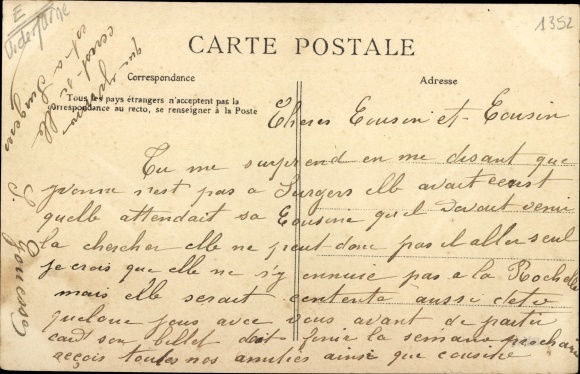 E
1352
CARTE POSTALE
Correspondance
Adresse
Tous les pays étrangers n'acceptent pas la
correspondance au recto, se renseigner à la Poste
Cheres Cousin et Cousin
Tu me surprend en me disant que
yvonne n'est pas a Surgers elle avait ecrit
quelle attendait sa Cousine qu'el devait venir
la chercher elle ne peut donc pas il aller seul
je crois que elle ne s'y ennuie pas a la Rochelle
mais elle serait contente aussi d'etre
quelque jous avec vous avant de partir
card son billet doit finir la semaine prochain
reçois toutes nos amitiés ainsi que cousine
que yvonne
elle
est a Surgers
Gonesse